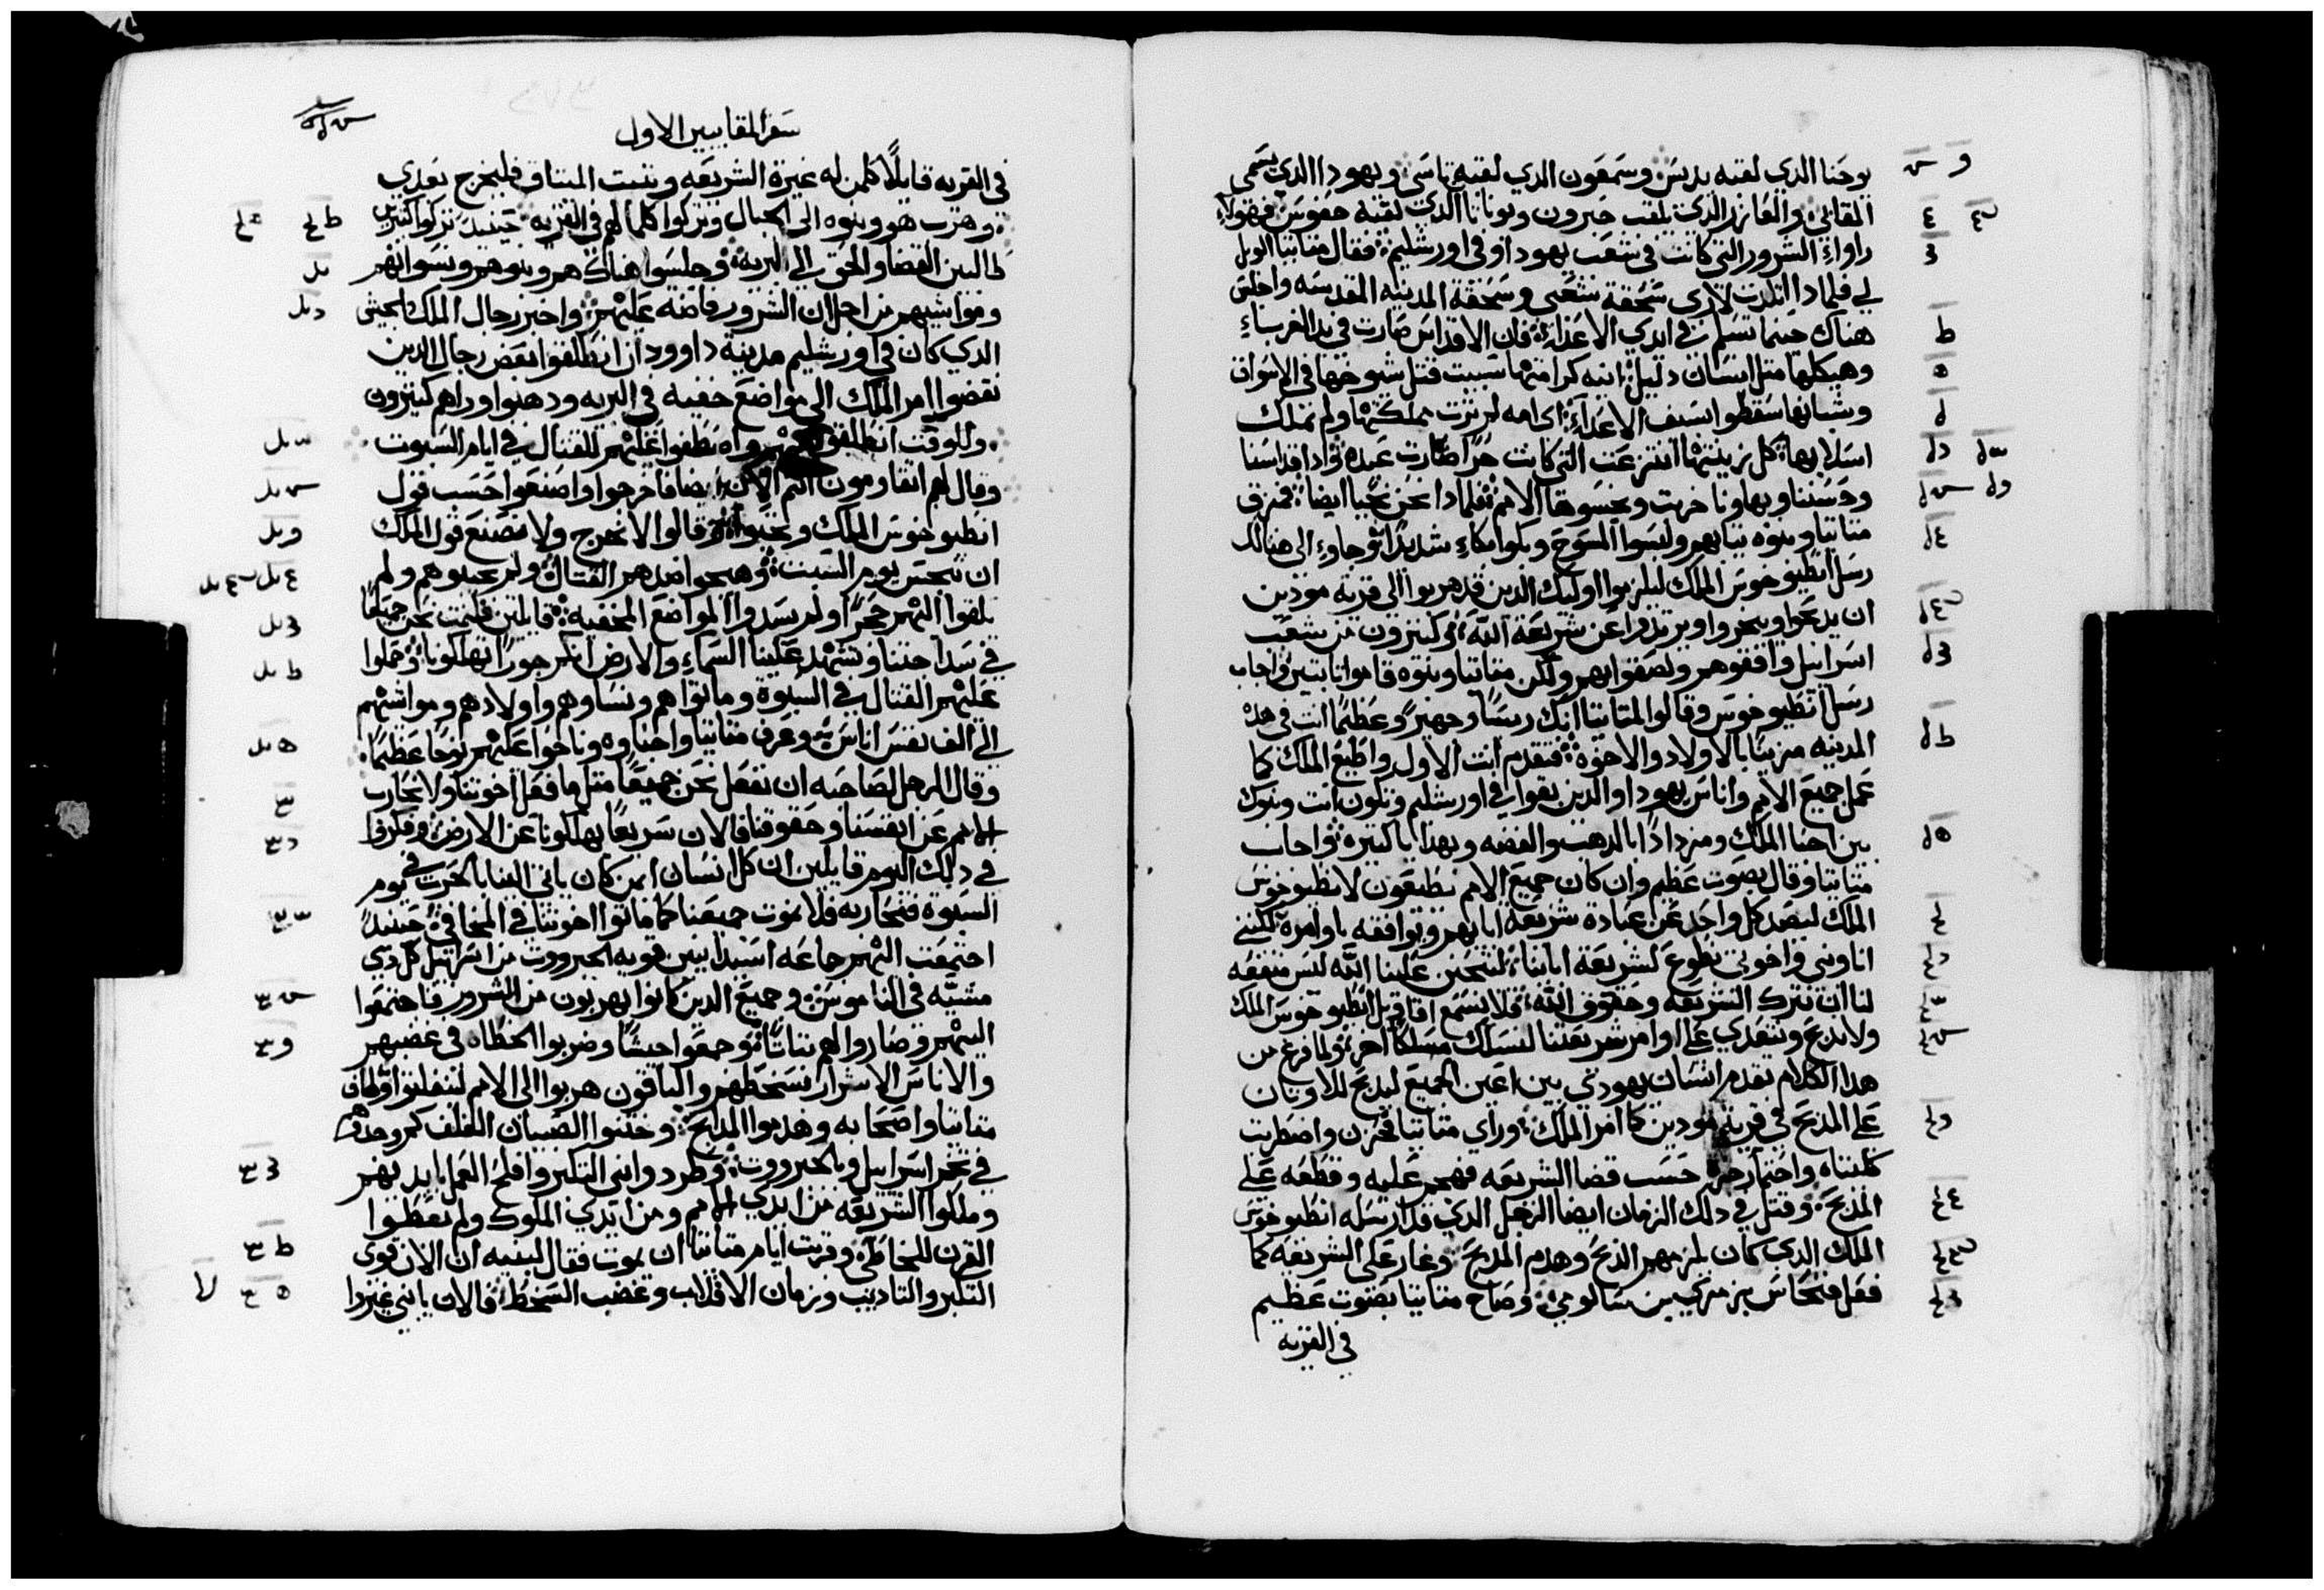 يوحنا الدي لقبه يديس وسمعون الدي لقبه تاسي ويهودا الدي يسمى
المقابي والعازر الدي يلقب حبرون ويوناتا الدي لقبه حفوس فهولاء
راواء الشرور التي كانت في شعب يهودا وفي اورشليم فقال متاتيا الويل
لي فلمادا اتلدت لارى سحقة شعبي وسحقة المدينه المقدسه واجلس
هناك حينما تسلم في ايدي الاعداء فان الاقداس صارت في يد الغرباء
وهيكلها متل انسان دليل انيه كرامتها سبيت قتل شيوخها في الاسواق
وشبانها سقطوا بسيف الاعداء اي امه لم ترت مملكتها ولم تملك
اسلابها كل زينتها انتزعت التي كانت حرا صارت عبده وادا اقداسنا
وحسننا وبهاونا خربت ونجسوها الامم فلمادا نحن نحيا ايضا فمزق
متاتيا وبنوه تيابهم ولبسوا المسوح وبكوا بكاء شديدا وجاوء الى هنالك
رسل انطيوخوس الملك ليلزموا اوليك الدين قد هربوا الى قرية مودين
ان يدبحوا ويبخروا ويرتدوا عن شريعة الله وكتيرون من شعب
اسراييل وافقوهم ولصقوا بهم ولكن متاتيا وبنوه قاموا تابتين واجاب
رسل انطيوخوس وقالوا لمتاتيا انك ريسا وجهير وعظيما انت في هده
المدينه مزينا بالاولاد والاخوة فتقدم انت الاول واطيع الملك كما
عمل جميع الامم واناس يهودا والدين بقوا في اورشليم وتكون انت وبنوك
بين احبا الملك ومزدادا بالدهب والفضه وبهدايا كتيره واجاب
متاتيا وقال بصوت عظيم وان كان جميع الامم تطيعون لانطيوخوس
الملك ليصد كل واحد عن عبادة شريعة ابايهم ويوافقه باوامره لكنني
انا وبني واخوتي نطوع لشريعة اباينا لنتحنن علينا الله ليس منفعه
لنا ان نترك الشريعه وحقوق الله فلا نسمع اقاويل انطيوخوس الملك
ولا ندبح ونتعدي على اوامر شريعتنا لنسلك مسلكا اخر ولما فرغ من
هدا الكلام تقدم انسان يهودي بين اعين الجميع ليدبح للاوتان
على المدبح في قرية مودين كما امر الملك وراي متاتيا فحزن واضطربت
كليتاه واحتما رجزه حسب قضا الشريعه فهجم عليه وقطعه على
المدبح وقتل في دلك الزمان ايضا الرجل الدي قد ارسله انطيوخوس
الملك الدي كان يلزمهم الدبح وهدم المدبح وغار على الشريعه كما
فعل فنحاس بزمري بن سالومي وصاح متاتيا بصوت عظيم
في القريه
سفر المقابيين الاول
في القريه قايلا كلمن له غيرة الشريعه ويتبت الميتاق فليخرج بعدي
وهرب هو وبنوه الى الجبال وتركوا كلما لهم في القريه حينيد نزلوا كتيرين
طالبين القضا والحق الى البريه وجلسوا هناك هم وبنوهم ونسوانهم
ومواشيهم من اجل ان الشرور فاضه عليهم واخبر رجال الملك والجيش
الدي كان في اورشليم مدينة داوود ان انطلقوا بعض رجال الدين
نقضوا امر الملك الى مواضع خفيه في البريه ودهبوا وراهم كتيرون
وللوقت انطلقوا اليهم واصطفوا عليهم للقتال في ايام السبوت
وقال لهم اتقاومون انتم الان ايضا فاخرجوا واصنعوا حسب قول
انطيوخوس الملك وتحيوا فقالوا لا نخرج ولا نصنع قول الملك
ان نجس يوم السبت وهيجوا ضدهم القتال ولم يجيبوهم ولم
يلقوا اليهم حجرا ولم يسدوا المواضع المخفيه قايلين فلنمت نحن جميعا
في سداجتنا وتشهد علينا السماء والارض انكم جورا تهلكونا وحملوا
عليهم القتال في السبوة وماتوا هم ونساوهم واولادهم ومواشيهم
الى الف نفس اناسيه وعرف متاتيا واحباوه وناحوا عليهم نوحا عظيما
وقال الرجل لصاحبه ان نفعل نحن جميعا متل ما فعل اخوتنا ولا نحارب
الامم عن انفسنا وحقوقنا فالان سريعا يهلكونا عن الارض وفكروا
في دلك اليوم قايلين ان كل انسان ايمن كان ياتي الينا بالحرب في يوم
السبوة فنحاربه فلا نموت جميعنا كما ماتوا اخوتنا في المخافي حينيدا
اجتمعت اليهم جماعه اسيدايين قويه الجبرووت من اسراييل كل دي
مشيه في الناموس وجميع الدين كانوا يهربون من الشرور فاجتمعوا
اليهم وصاروا لهم تباتا وجمعوا جيشا وضربوا الخطاه في غضبهم
والاناس الاشرار بسخطهم والباقون هربوا الى الامم ليتفلتوا وطاف
متاتيا واصحابه وهدموا المدابح وختنوا الصبيان الغلف كم وجدوهم
في تخم اسراييل وبالجبرووت وطردوا بني التكبر وافلح العمل بايديهم
وملكوا الشريعه من ايدي الامم ومن ايدي الملوك ولم يعطوا
القرن للخاطي وقربت ايام متاتيا ان يموت فقال لبنيه ان الان قوى
التكبر والتاديب وزمان الانقلاب وغضب السخط فالان يا بني غيروا